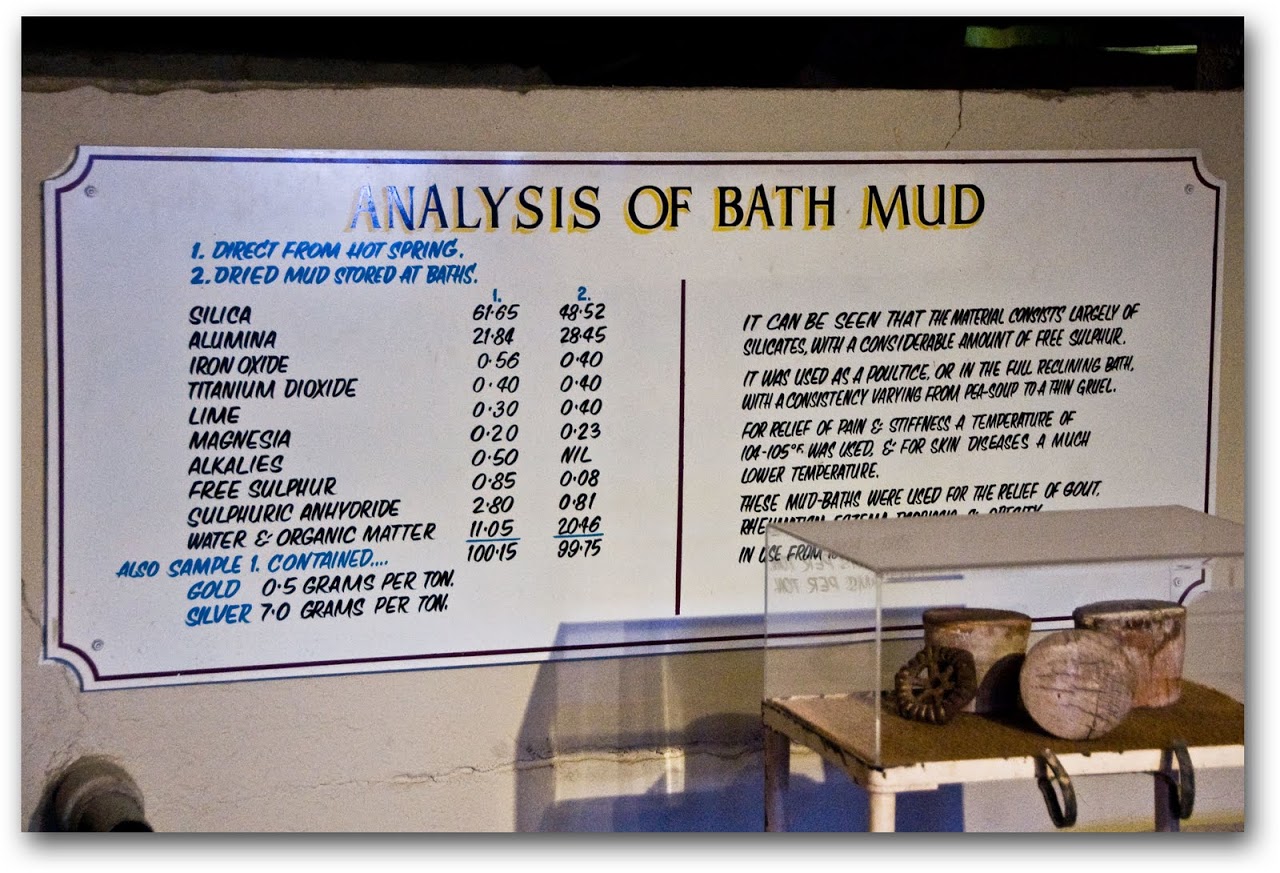 ANALYSIS OF BATH MUD
1. DIRECT FROM HOT SPRING.
2. DRIED MUD STORED AT BATHS.
1. 2.
SILICA 61·65 48·52
ALUMINA 21·84 28·45
IRON OXIDE 0·56 0·40
TITANIUM DIOXIDE 0·40 0·40
LIME 0·30 0·40
MAGNESIA 0·20 0·23
ALKALIES 0·50 NIL
FREE SULPHUR 0·85 0·08
SULPHURIC ANHYDRIDE 2·80 0·81
WATER & ORGANIC MATTER 11·05 20·46
100·15 99·75
ALSO SAMPLE 1. CONTAINED....
GOLD 0·5 GRAMS PER TON.
SILVER 7·0 GRAMS PER TON.
IT CAN BE SEEN THAT THE MATERIAL CONSISTS LARGELY OF
SILICATES, WITH A CONSIDERABLE AMOUNT OF FREE SULPHUR.
IT WAS USED AS A POULTICE, OR IN THE FULL RECLINING BATH,
WITH A CONSISTENCY VARYING FROM PEA-SOUP TO A THIN GRUEL.
FOR RELIEF OF PAIN & STIFFNESS A TEMPERATURE OF
104-105°F. WAS USED, & FOR SKIN DISEASES A MUCH
LOWER TEMPERATURE.
THESE MUD-BATHS WERE USED FOR THE RELIEF OF GOUT,
RHEUMATISM, ECZEMA, PSORIASIS & OBESITY.
IN USE FROM